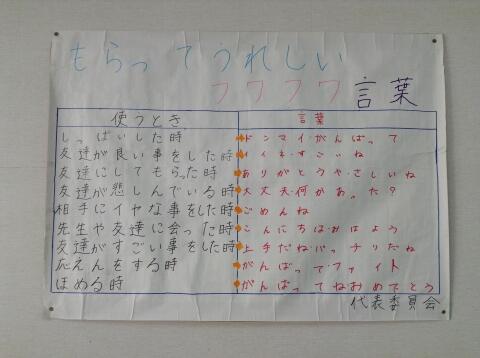 もらってうれしい
フワフワ言葉
使うとき 言葉
しっぱいした時 ドンマイ・がんばって
友達が良い事をした時 イイネ・すごいね
友達にしてもらった時 ありがとう・やさしいね
友達が悲しんでいる時 大丈夫・何かあった?
相手にイヤな事をした時 ごめんね
先生や友達に会った時 こんにちは・おはよう
友達がすごい事をした時 上手だね・バッチリだね
応えんをする時 がんばって・ファイト
ほめる時 がんばってねおめでとう
代表委員会